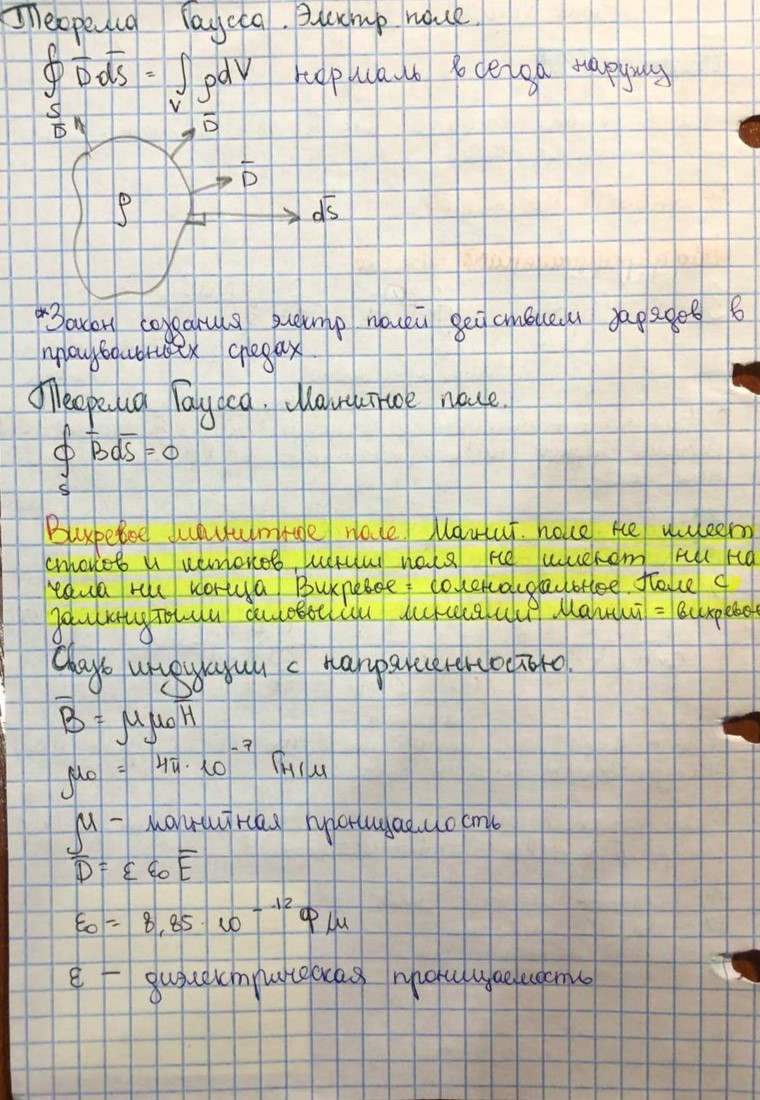 Теорема Гаусса. Электр поле.
∮ D̅ds̅ = ∫ ρdV нормаль всегда наружу
S V
D̅ D̅
D̅
ρ ds̅
*Закон создания электр полей действием зарядов в
произвольных средах.
Теорема Гаусса. Магнитное поле.
∮ B̅ds̅ = 0
s
Вихревое магнитное поле. Магнит. поле не имеет
стоков и истоков, линии поля не имеют ни на
чала ни конца. Вихревое = соленоидальное. Поле с
замкнутыми силовыми линиями. Магнит = вихревое
Связь индукции с напряженностью.
B̅ = μμ₀H̅
μ₀ = 4π · 10⁻⁷ Гн/м
μ – магнитная проницаемость
D̅ = ε ε₀ E̅
ε₀ = 8,85 · 10⁻¹² Ф/м
ε – диэлектрическая проницаемость